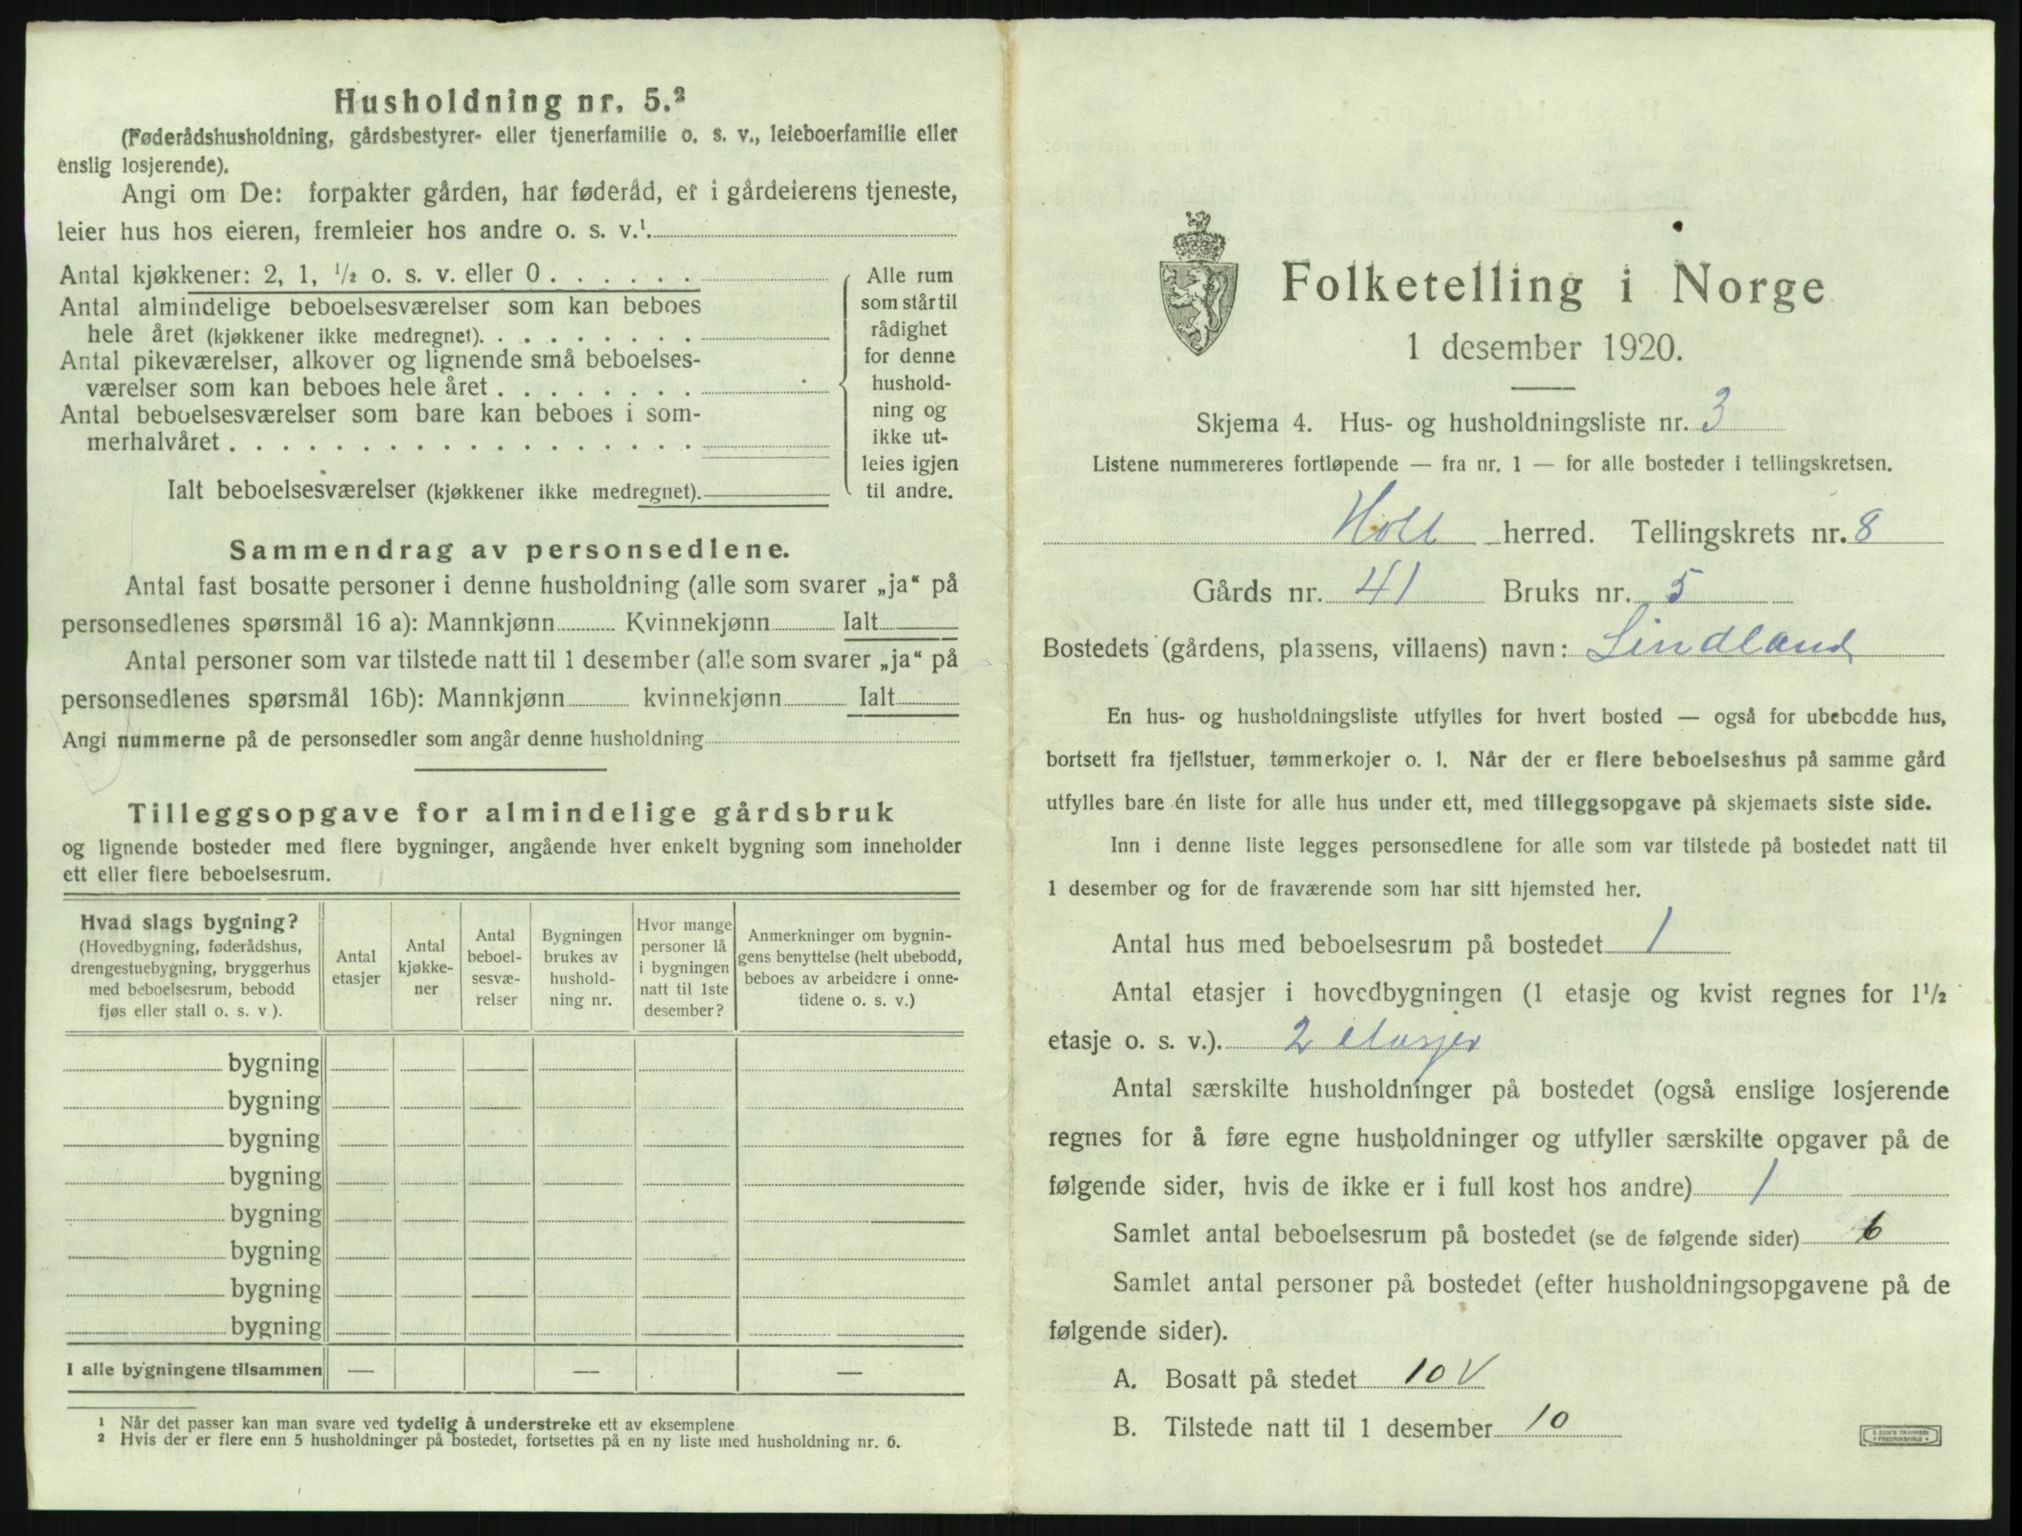 Husholdning nr. 5.²
(Føderådshusholdning, gårdsbestyrer- eller tjenerfamilie o. s. v., leieboerfamilie eller
enslig losjerende).
Angi om De: forpakter gården, har føderåd, er i gårdeierens tjeneste,
leier hus hos eieren, fremleier hos andre o. s. v.¹
Antal kjøkkener: 2, 1, ½ o. s. v. eller 0 . . . . . .
Antal almindelige beboelsesværelser som kan beboes
hele året (kjøkkener ikke medregnet). . . . . . . . .
Antal pikeværelser, alkover og lignende små beboelses-
værelser som kan beboes hele året . . . . . . . .
Antal beboelsesværelser som bare kan beboes i som-
merhalvåret . . . . . . . . . . . . . . . . . .
Ialt beboelsesværelser (kjøkkener ikke medregnet).
Alle rum
som står til
rådighet
for denne
hushold-
ning og
ikke ut-
leies igjen
til andre.
Sammendrag av personsedlene.
Antal fast bosatte personer i denne husholdning (alle som svarer „ja“ på
personsedlenes spørsmål 16 a): Mannkjønn Kvinnekjønn Ialt
Antal personer som var tilstede natt til 1 desember (alle som svarer „ja“ på
personsedlenes spørsmål 16b): Mannkjønn kvinnekjønn Ialt
Angi nummerne på de personsedler som angår denne husholdning
Tilleggsopgave for almindelige gårdsbruk
og lignende bosteder med flere bygninger, angående hver enkelt bygning som inneholder
ett eller flere beboelsesrum.
Hvad slags bygning?
(Hovedbygning, føderådshus,
drengestuebygning, bryggerhus
med beboelsesrum, bebodd
fjøs eller stall o. s. v ).
Antal
etasjer
Antal
kjøkke-
ner
Antal
beboel-
sesvæ-
relser
Bygningen
brukes av
hushold-
ning nr.
Hvor mange
personer lå
i bygningen
natt til 1ste
desember?
Anmerkninger om bygnin-
gens benyttelse (helt ubebodd,
beboes av arbeidere i onne-
tidene o. s. v.)
bygning
bygning
bygning
bygning
bygning
bygning
bygning
bygning
I alle bygningene tilsammen — — —
¹ Når det passer kan man svare ved tydelig å understreke ett av eksemplene
² Hvis der er flere enn 5 husholdninger på bostedet, fortsettes på en ny liste med husholdning nr. 6.
Folketelling i Norge
1 desember 1920.
Skjema 4. Hus- og husholdningsliste nr. 3
Listene nummereres fortløpende — fra nr. 1 — for alle bosteder i tellingskretsen.
Holt herred. Tellingskrets nr. 8
Gårds nr. 41 Bruks nr. 5
Bostedets (gårdens, plassens, villaens) navn: Lindland
En hus- og husholdningsliste utfylles for hvert bosted — også for ubebodde hus,
bortsett fra fjellstuer, tømmerkojer o. l. Når der er flere beboelseshus på samme gård
utfylles bare én liste for alle hus under ett, med tilleggsopgave på skjemaets siste side.
Inn i denne liste legges personsedlene for alle som var tilstede på bostedet natt til
1 desember og for de fraværende som har sitt hjemsted her.
Antal hus med beboelsesrum på bostedet 1
Antal etasjer i hovedbygningen (1 etasje og kvist regnes for 1½
etasje o. s. v.). 2 etasjer
Antal særskilte husholdninger på bostedet (også enslige losjerende
regnes for å føre egne husholdninger og utfyller særskilte opgaver på de
følgende sider, hvis de ikke er i full kost hos andre) 1
Samlet antal beboelsesrum på bostedet (se de følgende sider) 6
Samlet antal personer på bostedet (efter husholdningsopgavene på de
følgende sider).
A. Bosatt på stedet 10 V
B. Tilstede natt til 1 desember 10